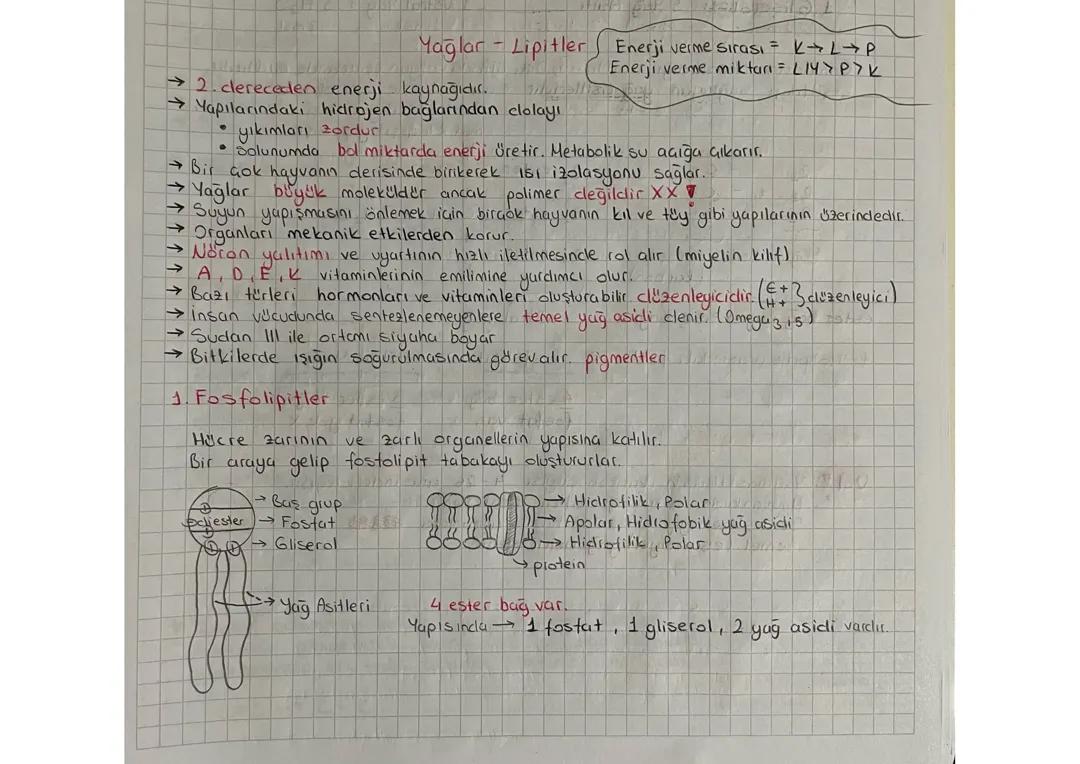 Yağlar - Lipitler
Enerji verme sırası = K → L → P
Enerji verme miktarı = L > P > K
→ 2. dereceden enerji kaynağıdır.
→ Yapılarındaki hidrojen bağlarından dolayı
• yıkımları zordur
• Solunumda bol miktarda enerji üretir. Metabolik su açığa çıkarır.
→ Bir çok hayvanın derisinde birikerek ısı izolasyonu sağlar.
→ Yağlar büyük moleküldür ancak polimer değildir XX !
→ Suyun yapışmasını önlemek için birçok hayvanın kıl ve tüy gibi yapılarının üzerindedir.
→ Organları mekanik etkilerden korur.
→ Nöron yalıtımı ve uyartının hızlı iletilmesinde rol alır (miyelin kılıf)
→ A, D, E, K vitaminlerinin emilimine yardımcı olur.
→ Bazı türleri hormonları ve vitaminleri oluşturabilir düzenleyicidir. (E+ H+ } düzenleyici)
→ İnsan vücudunda sentezlenemeyenlere temel yağ asidi denir. (Omega 3,5)
→ Sudan III ile ortamı siyaha boyar
→ Bitkilerde ışığın soğurulmasında görev alır. pigmentler
1. Fosfolipitler
Hücre zarının ve zarlı organellerin yapısına katılır.
Bir araya gelip fosfolipit tabakayı oluştururlar.
→ Baş grup
→ Fosfat
→ Gliserol
→ Yağ Asitleri
→ Hidrofilik, Polar
→ Apolar, Hidrofobik yağ asidi
→ Hidrofilik, Polar
→ protein
4 ester bağ var.
Yapısında → 1 fosfat, 1 gliserol, 2 yağ asidi vardır.